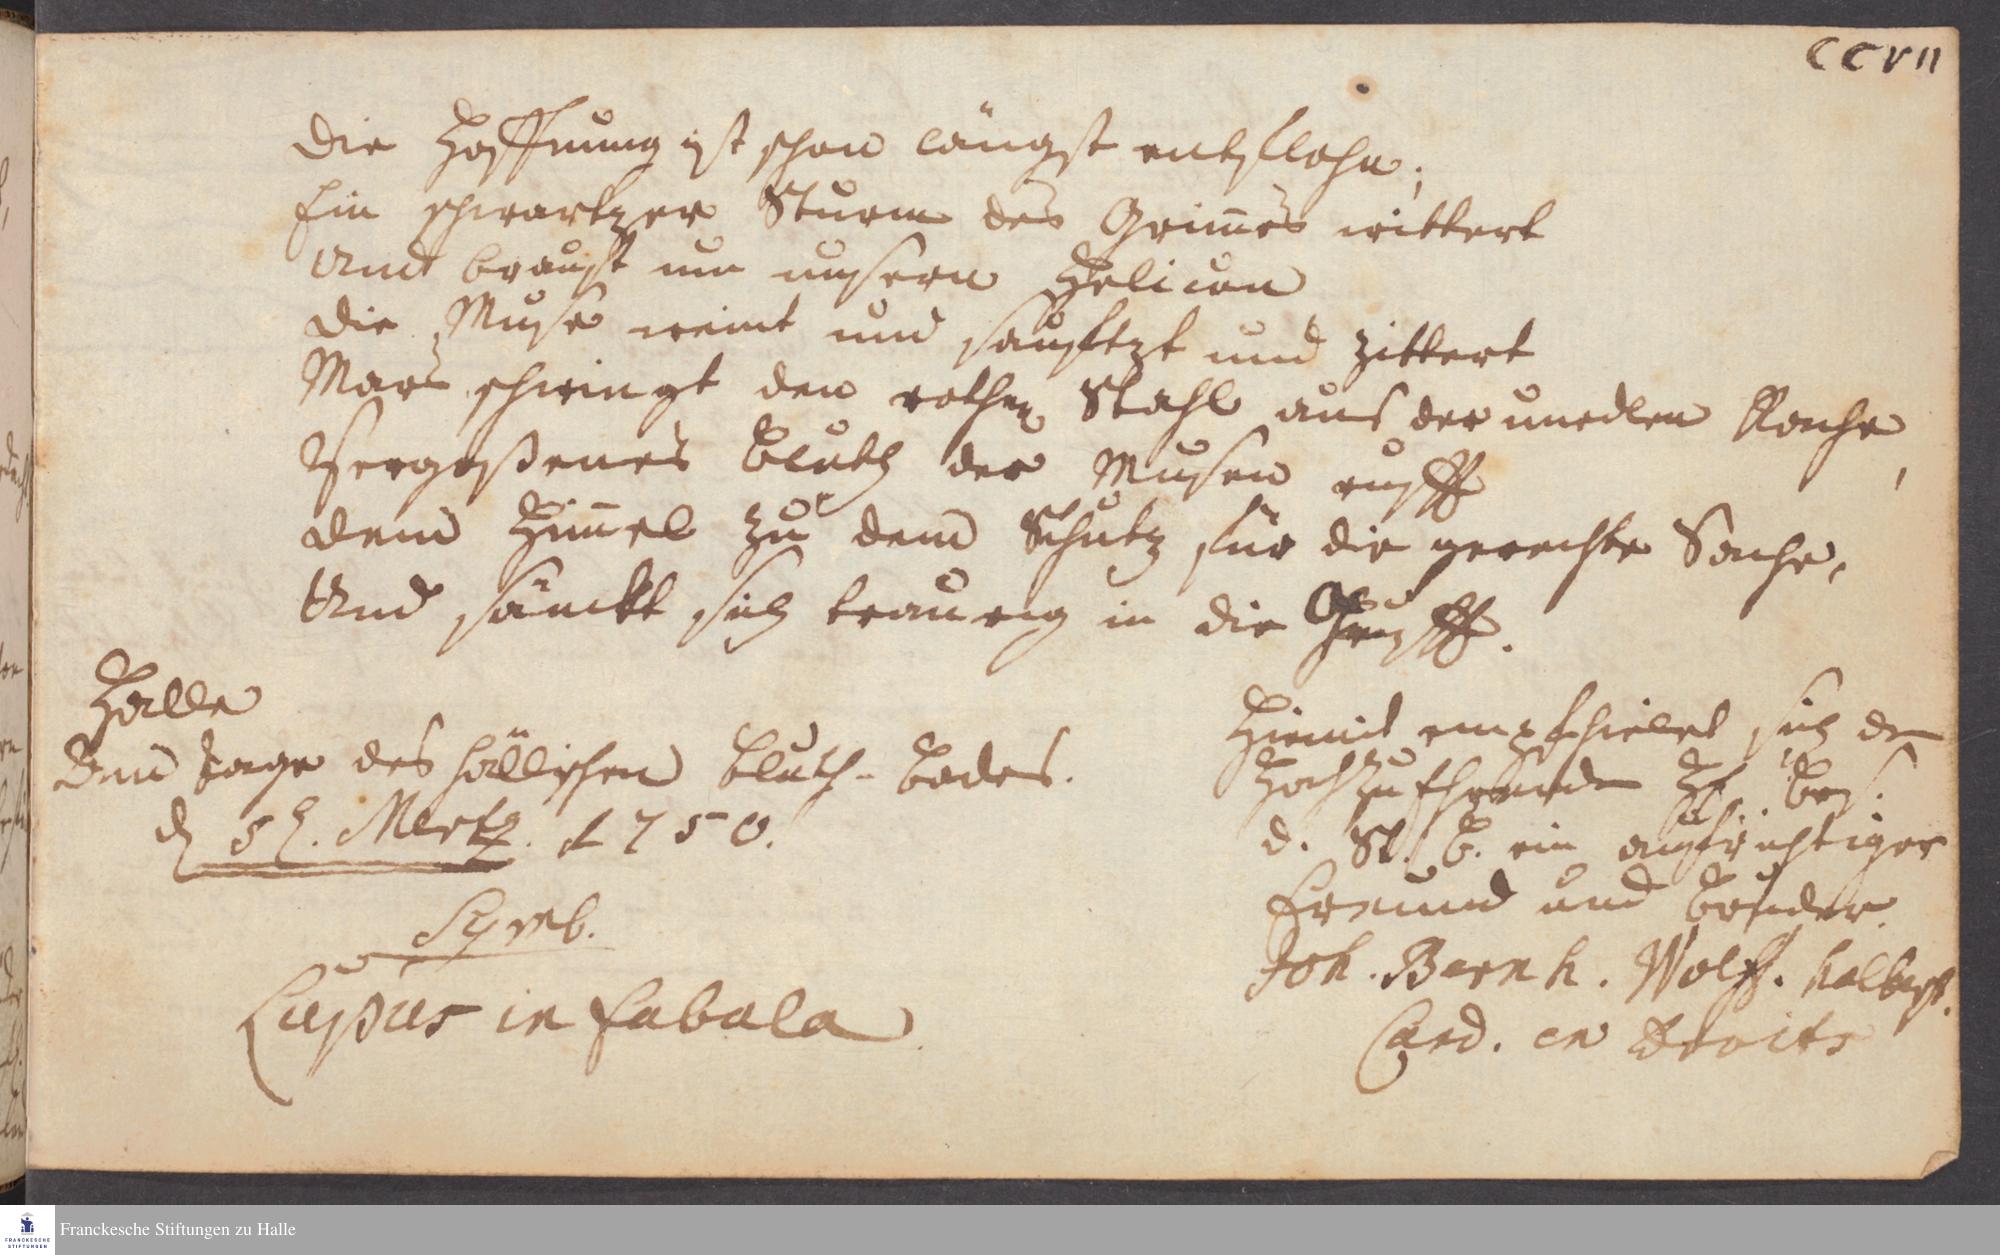 CCVII
Die Hoffnung ist schon längst entflohn;
Ein schwartzer Sturm des Grimes wittert
Und braust um unsern Helicon
Die Muse weint und säufftzt und zittert
Mars schwingt den rothen Stahl aus der unedlen Rache,
Vergoßenes Bluth der Musen rufft
dem Himel zu dem Schutz für die gerechte Sache,
Und senckt sich traurig in die Grufft.
Halle
Am Tage des hällischen Bluth-Bades.
d 5t. Mertz. 1750.
Symb.
Lupus in Fabula.
Hiemit empfiehlet sich dem
Hochzuschätzenden
d. St. B. ein aufrichtiger
Freund und Bruder.
Joh. Bernh. Wolff. Halberst.
Cand. en Droits
Franckesche Stiftungen zu Halle
FRANCKESCHE
STIFTUNGEN